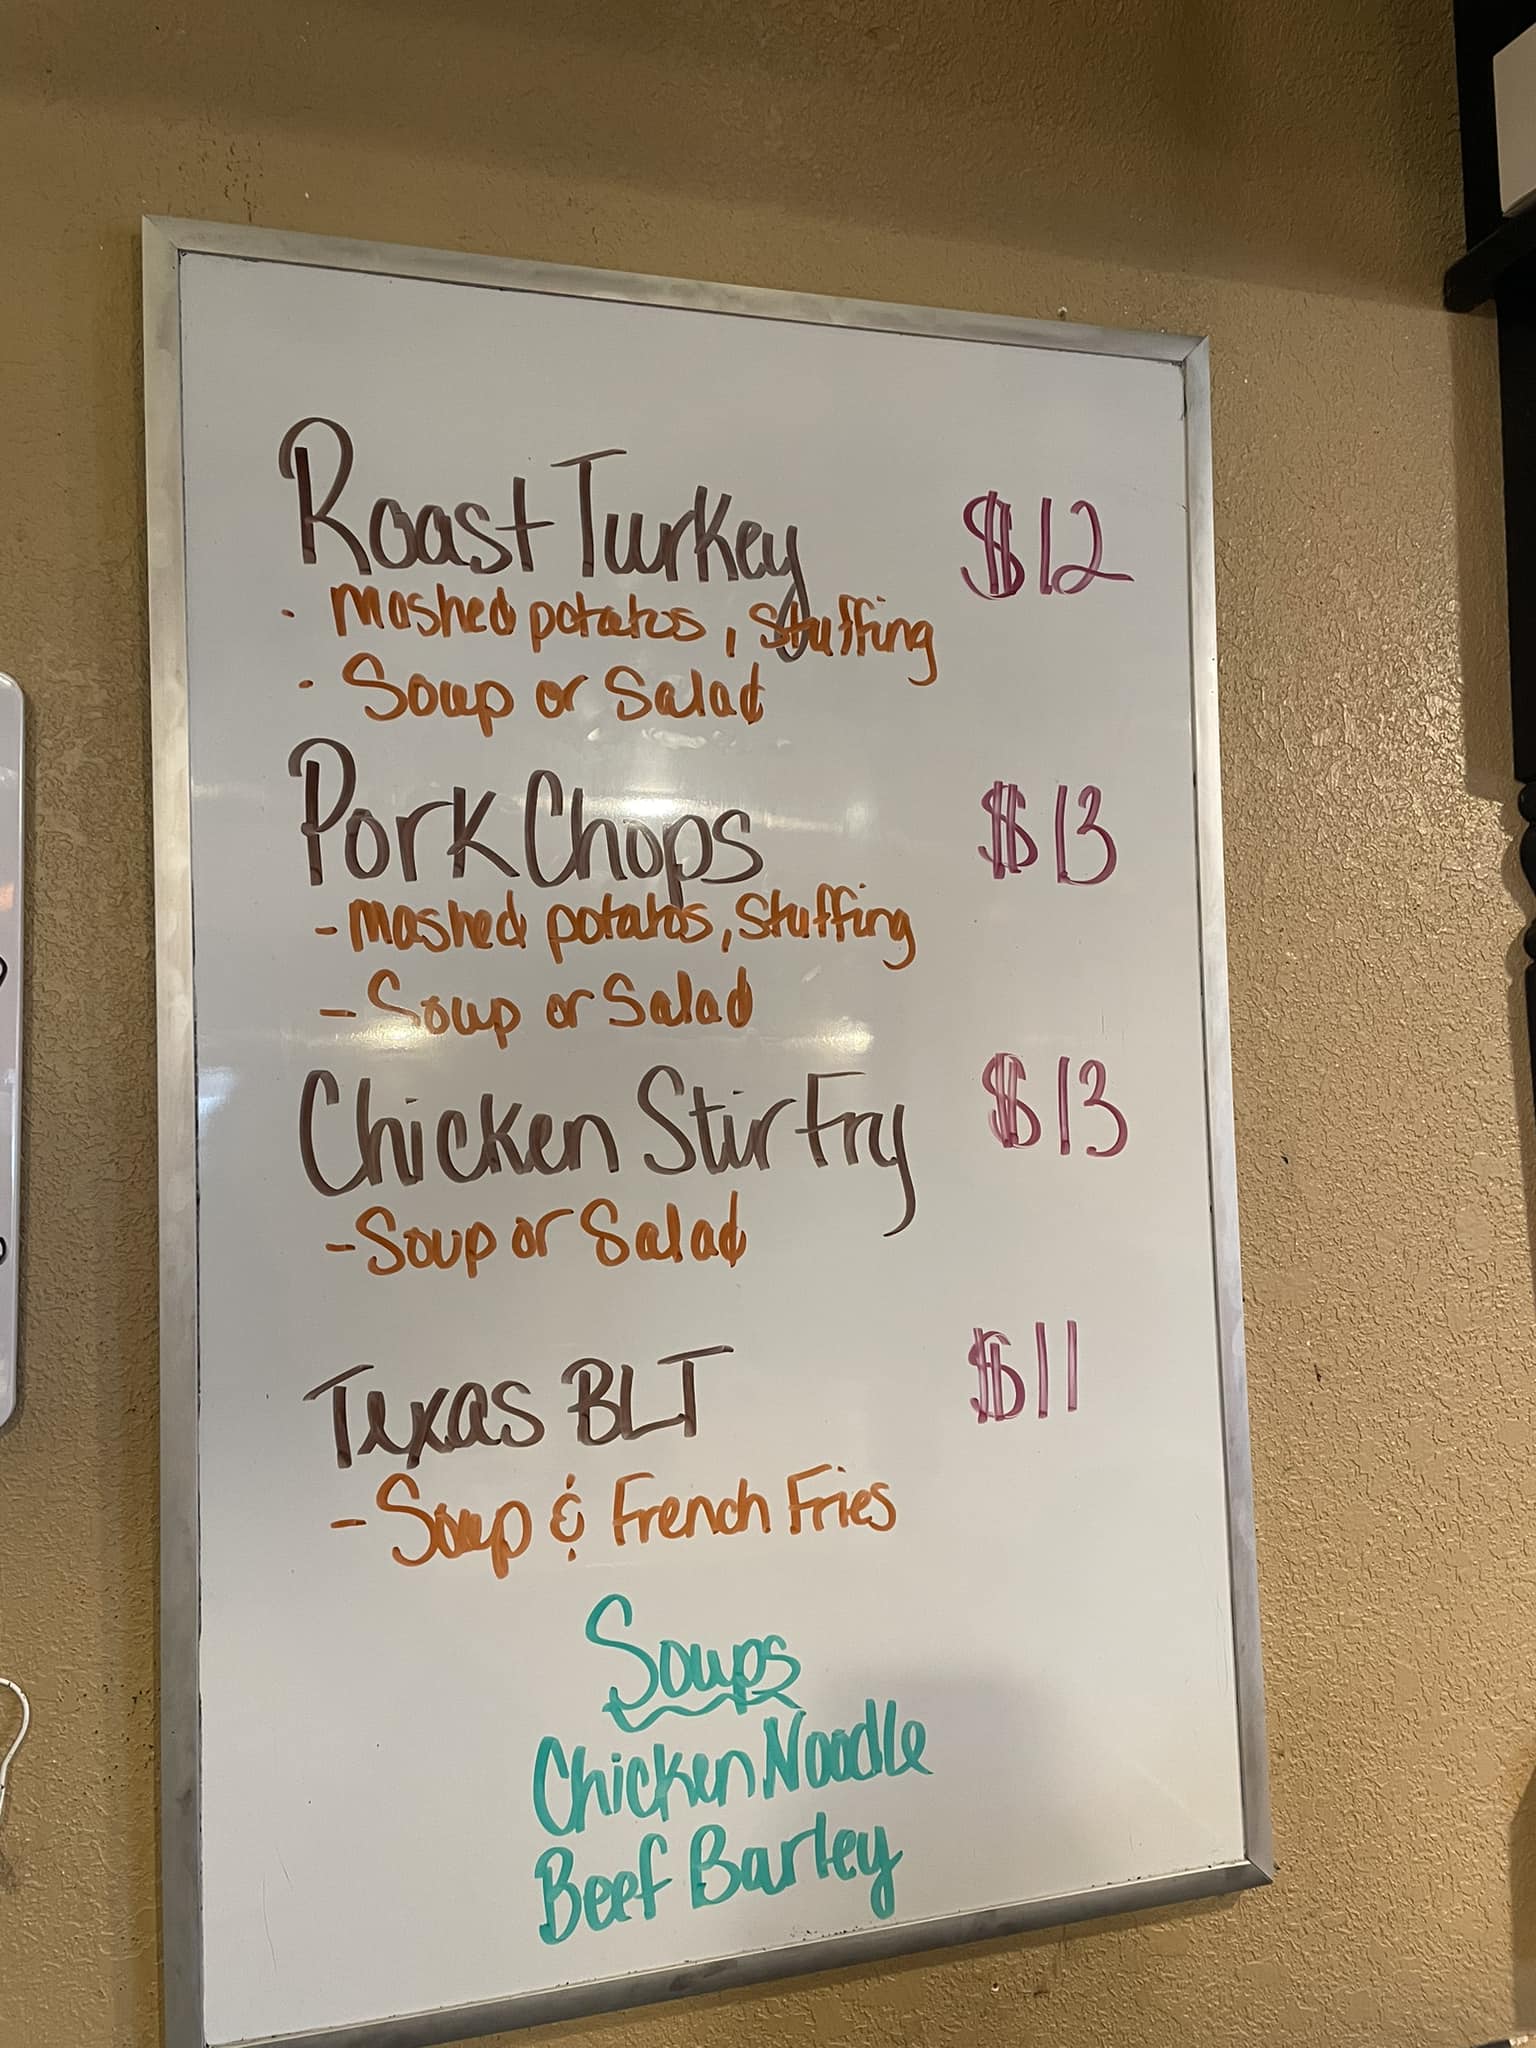 Roast Turkey $12
· Mashed potatos, Stuffing
· Soup or Salad
Pork Chops $13
- Mashed potatos, Stuffing
- Soup or Salad
Chicken Stir Fry $13
- Soup or Salad
Texas BLT $11
- Soup & French Fries
Soups
Chicken Noodle
Beef Barley